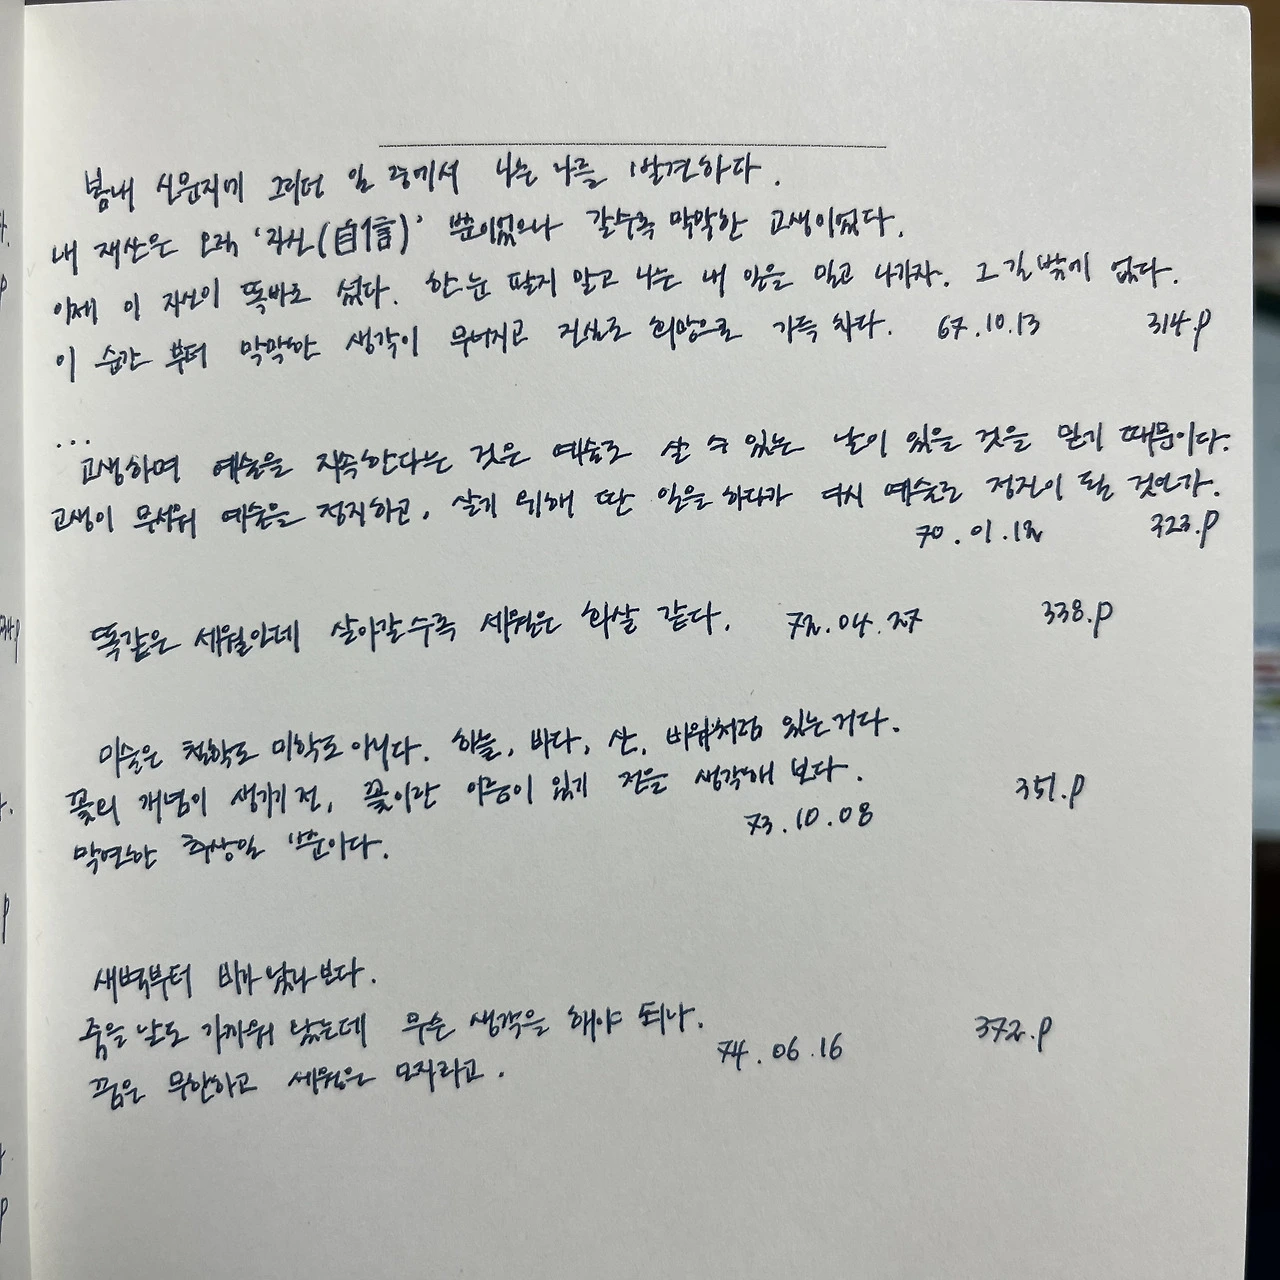 봄내 신문지에 그리던 일 중에서 나는 나를 발견하다.
내 재산은 오직 '자신(自信)' 뿐이었으나 갈수록 막막한 고생이었다.
이제 이 자신이 똑바로 섰다. 한눈 팔지 말고 나는 내 일을 밀고 나가자. 그 길밖에 없다.
이 순간 부터 막막한 생각이 무너지고 진실로 희망으로 가득 차다. 67.10.13 314.p
...
고생하며 예술을 지속한다는 것은 예술로 살 수 있는 날이 있을 것을 믿기 때문이다.
고생이 무서워 예술을 정지하고, 살기 위해 딴 일을 하다가 다시 예술로 정진이 될 것인가.
70.01.12 323.p
똑같은 세월인데 살아갈수록 세월은 화살 같다. 72.04.27 338.p
미술은 철학도 미학도 아니다. 하늘, 바다, 산, 바위처럼 있는거다.
꽃의 개념이 생기기 전, 꽃이란 이름이 있기 전을 생각해 보다. 351.p
막연한 추상일 뿐이다. 73.10.08
새벽부터 비가 왔나보다.
죽을 날도 가까워 왔는데 무슨 생각을 해야 되나. 372.p
꿈은 무한하고 세월은 모자라고. 74.06.16